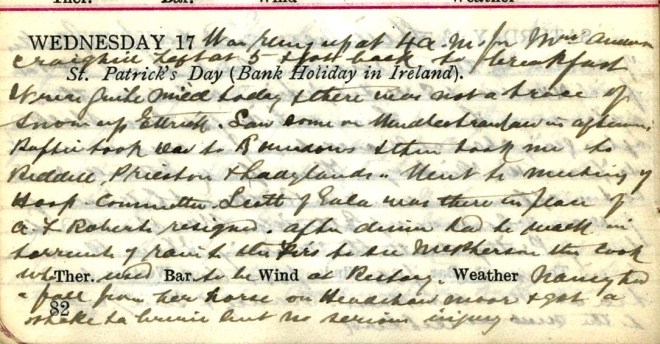 Ther. Bar. Wind Weather
WEDNESDAY 17 Was rung up at 4 a.m. for Mrs
Craighill Left at 5 & got back to breakfast
St. Patrick's Day (Bank Holiday in Ireland).
It was quite mild today & there was not a trace of
snow up Ettrick. Saw some on in afternoon
took Dad to & then took me to
Riddell, Prieston & Ladylands. Went to meeting of
Hosp. Committee. Scott of Gala was there in place of
A. L. Roberts resigned. After dinner had to walk in
torrents of rain to the Firs to see McPherson the cook
who used to be at Rectory. Nancy had
Ther. Bar. Wind Weather
a fall from her horse on moor & got a
82
shake & a bruise but no serious injury